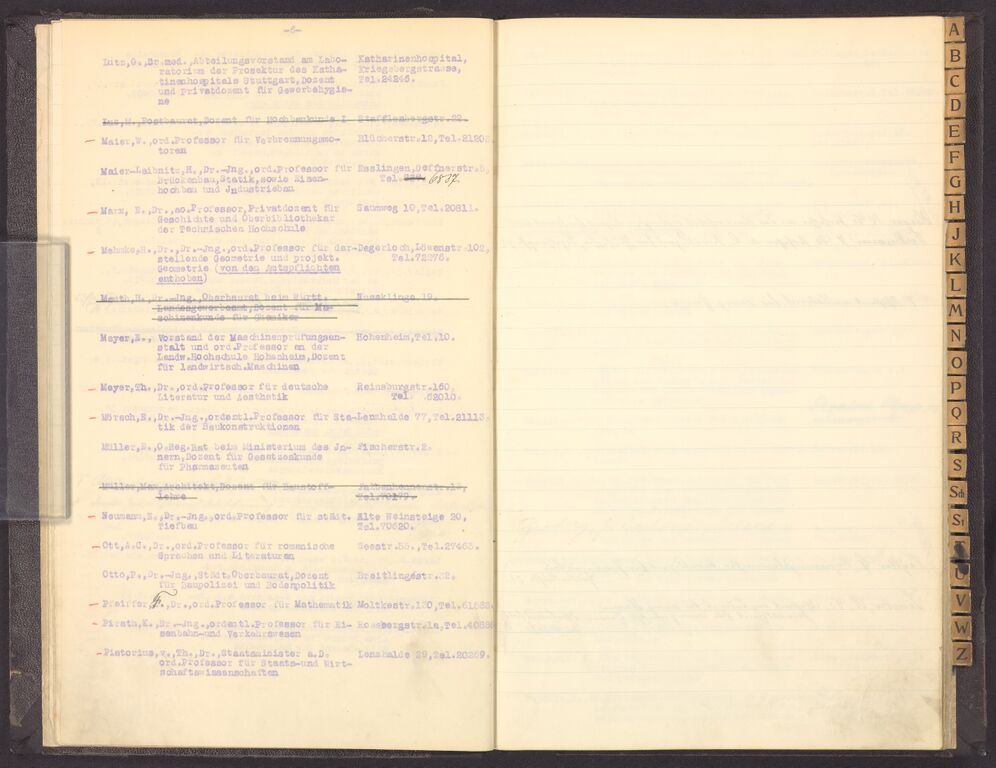 -6-
Lutz,G.,Dr.med.,Abteilungsvorstand am Labo- Katharinenhospital,
ratorium der Prosektur des Katha- Kriegsbergstrasse,
tinenhospitals Stuttgart,Dozent Tel.24246.
und Privatdozent für Gewerbehygie-
ne
Lus,M.,Postbaurat,Dozent für Hochbaukunde I Stafflenbergstr.22.
Maier,W.,ord.Professor für Verbrennungsmo- Blücherstr.12,Tel.2120
toren
Maier-Leibnitz,H.,Dr.-Jng.,ord.Professor für Esslingen,Deffnerstr.5,
Brückenbau,Statik,sowie Eisen- Tel. 6837
hochbau und Jndustriebau
Marx, E.,Dr.,ao.Professor,Privatdozent für Saumweg 10,Tel.20811.
Geschichte und Oberbibliothekar
der Technischen Hochschule
Mehmke,R.,Dr.,Dr.-Jng.,ord.Professor für dar-Degerloch,Löwenstr.102,
stellende Geometrie und projekt. Tel.72276.
Geometrie (von den Amtspflichten
enthoben)
Meuth,H.,Dr.-Jng.,Oberbaurat beim Württ. Nassklinge 19.
Landesgewerbeamt,Dozent für Ma-
schinenkunde für Chemiker
Meyer,E., Vorstand der Maschinenprüfungsan- Hohenheim,Tel,10.
stalt und ord.Professor an der
Landw.Hochschule Hohenheim,Dozent
für landwirtsch.Maschinen
Meyer,Th.,Dr.,ord.Professor für deutsche Reinsburgstr.160.
Literatur und Aesthetik Tel. 62010.
Mörsch,E.,Dr.-Jng.,ordentl.Professor für Sta-Lenzhalde 77,Tel.21113.
tik der Baukonstruktionen
Müller,E.,O.Reg.Rat beim Ministerium des Jn- Fischerstr.2.
nern,Dozent für Gesetzeskunde
für Pharmazeuten
Müller,Max,Architekt,Dozent für Baustoff-
lehre Tel.70179.
Neumann,E.,Dr.-Jng.,ord.Professor für städt. Alte Weinsteige 20,
Tiefbau Tel.70620.
Ott,A.C.,Dr.,ord.Professor für romanische Seestr.55.,Tel.27463.
Sprachen und Literaturen
Otto,P.,Dr.-Jng.,Städt.Oberbaurat,Dozent Breitlingstr.32.
für Baupolizei und Bodenpolitik
Pfeiffer F.,Dr.,ord.Professor für Mathematik Moltkestr.120,Tel.
Pirath,K.,Dr.-Jng.,ordentl.Professor für Ei- Rossbergstr.1a,Tel.
senbahn-und Verkehrswesen
Pistorius,v.,Th.,Dr.,Staatsminister a.D. Lenzhalde 29,Tel.20269.
ord.Professor für Staats-und Wirt-
schaftswissenschaften
A
B
C
D
E
F
G
H
J
K
L
M
N
O
P
Q
R
S
Sch
St
T
U
V
W
Z